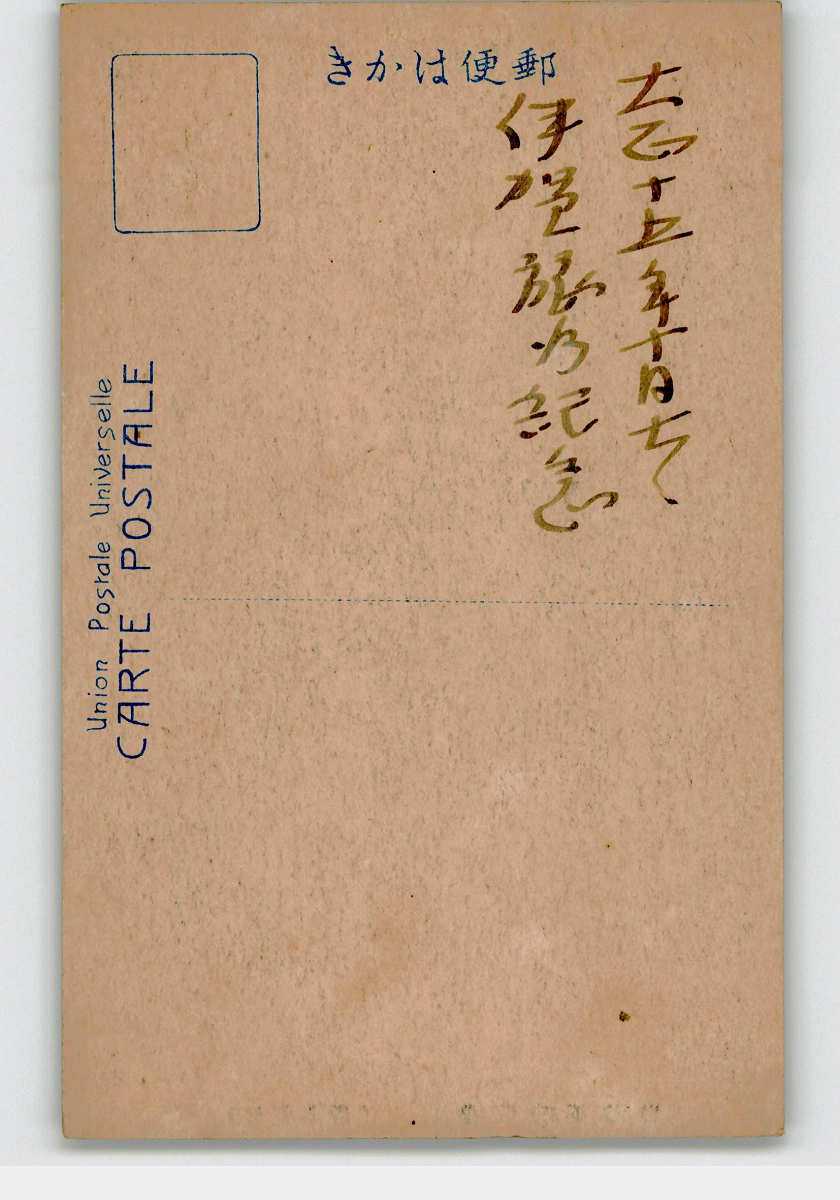 きかは便郵
大正十五年十月七日
伊賀旅行紀念
Union Postale Universelle
CARTE POSTALE